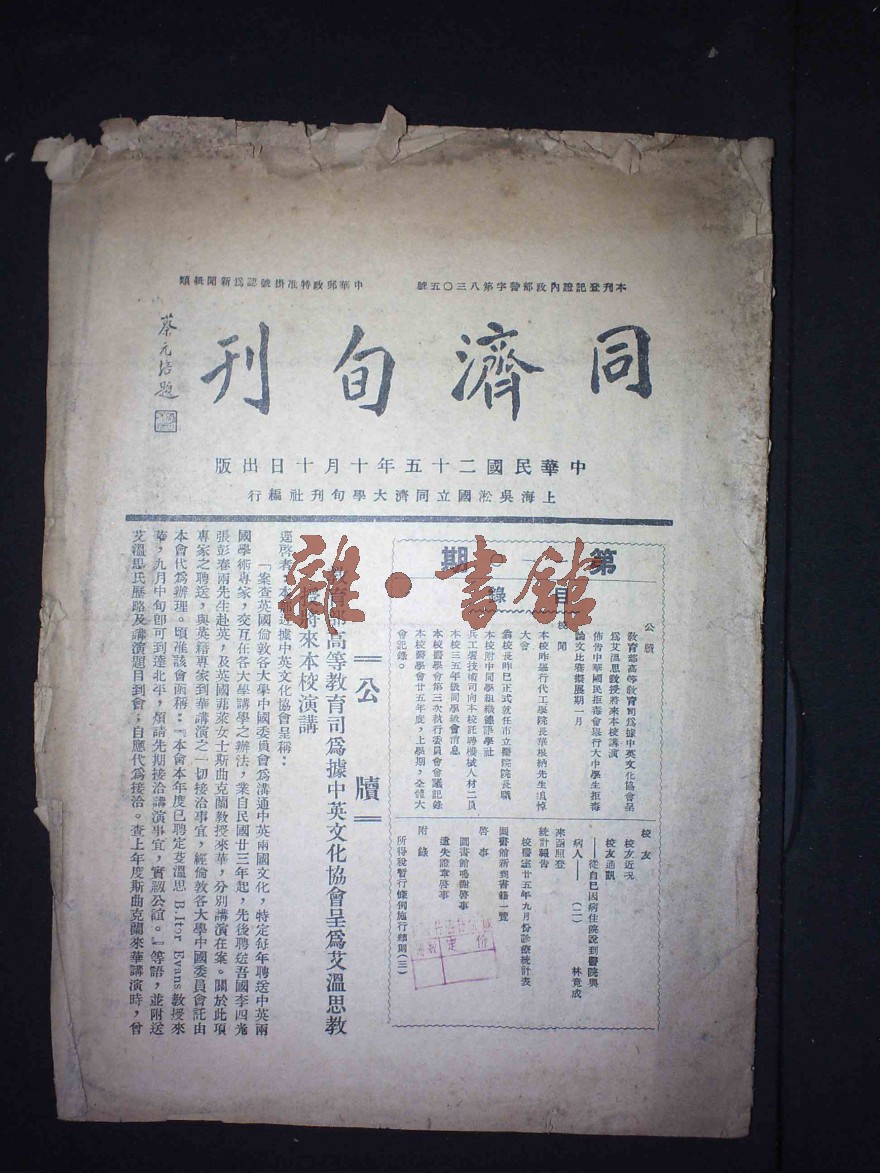 本刊登記證內政部警字第八三〇五號
中華郵政特准掛號認爲新聞紙類
同濟旬刊
蔡元培題
中華民國二十五年十月十日出版
上海吳淞國立同濟大學旬刊社編行
第一〇一期
目錄
公牘
教育部高等教育司爲據中英文化協會呈
爲艾溫思教授將來本校講演
佈告中華國民拒毒會舉行大中學生拒毒
論文比賽展期一月
校聞
本校昨舉行代工學院長華根納先生追悼
大會
校長昨已正式就任市立醫院院長職
本校附中同學組織德語學社
兵工署技術司向本校託聘機械人材二員
本校三五年級同學級會消息
本校醫學會第三次執行委員會會議記錄
本校醫學會廿五年度,上學期,全體大
會記錄。
校友
校友近况
校友通訊
——從自己因病住院說到醫院與
病人——(二) 林竟成
來函照登
統計報告
校醫室廿五年九月份診療統計表
圖書館新到書籍一覽
啓事
圖書館鳴謝啓事
遺失證章啓事
附錄
所得稅暫行條例施行細則(三)
=公牘=
教育部高等教育司爲據中英文化協會呈爲艾溫思教
授將來本校演講
逕啓者:本部近據中英文化協會呈稱:
「案查英國倫敦各大學中國委員會爲溝通中英兩國文化,特定每年聘送中英兩
國學術專家,交互在各大學講學之辦法,業自民國廿三年起,先後聘送吾國李四光
張彭春兩先生赴英,及英國菲萊女士斯曲克蘭教授來華,分別講演在案。關於此項
專家之聘送,與英籍專家到華講演之一切接洽事宜,經倫敦各大學中國委員會託由
本會代爲辦理。頃准該會函稱:『本會本年度已聘定艾溫思 B.Itor Evans 教授來
華,九月中旬即可到達北平,煩請先期接洽講演事宜,實紉公誼。』等語,並附送
艾溫思氏歷略及講演題目到會;自應代爲接洽。查上年度斯曲克蘭來華講演時,曾
雜·書館